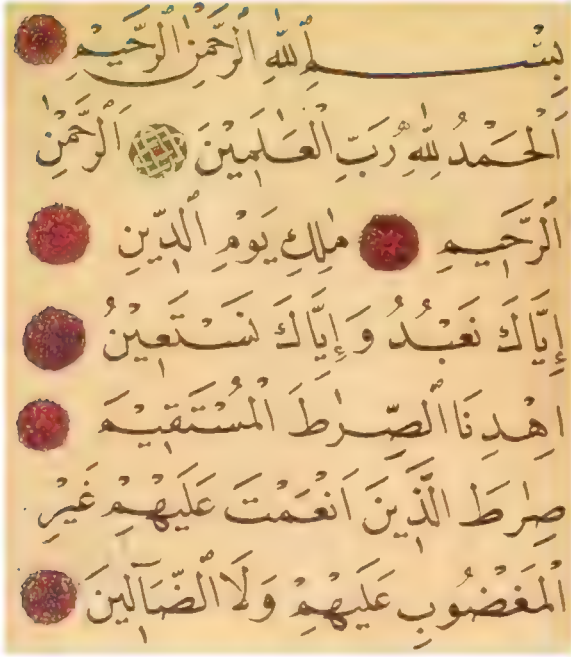 بِسْمِ ٱللّٰهِ ٱلرَّحْمٰنِ ٱلرَّحِيْمِ
اَلْحَمْدُ لِلّٰهِ رَبِّ الْعٰلَمِيْنَ اَلرَّحْمٰنِ
ٱلرَّحِيْمِ مٰلِكِ يَوْمِ الدِّيْنِ
إِيَّاكَ نَعْبُدُ وَإِيَّاكَ نَسْتَعِيْنُ
اِهْدِنَا ٱلصِّرٰطَ الْمُسْتَقِيْمَ
صِرٰطَ الَّذِيْنَ اَنْعَمْتَ عَلَيْهِمْ غَيْرِ
الْمَغْضُوْبِ عَلَيْهِمْ وَلَا ٱلضَّآلِّيْنَ